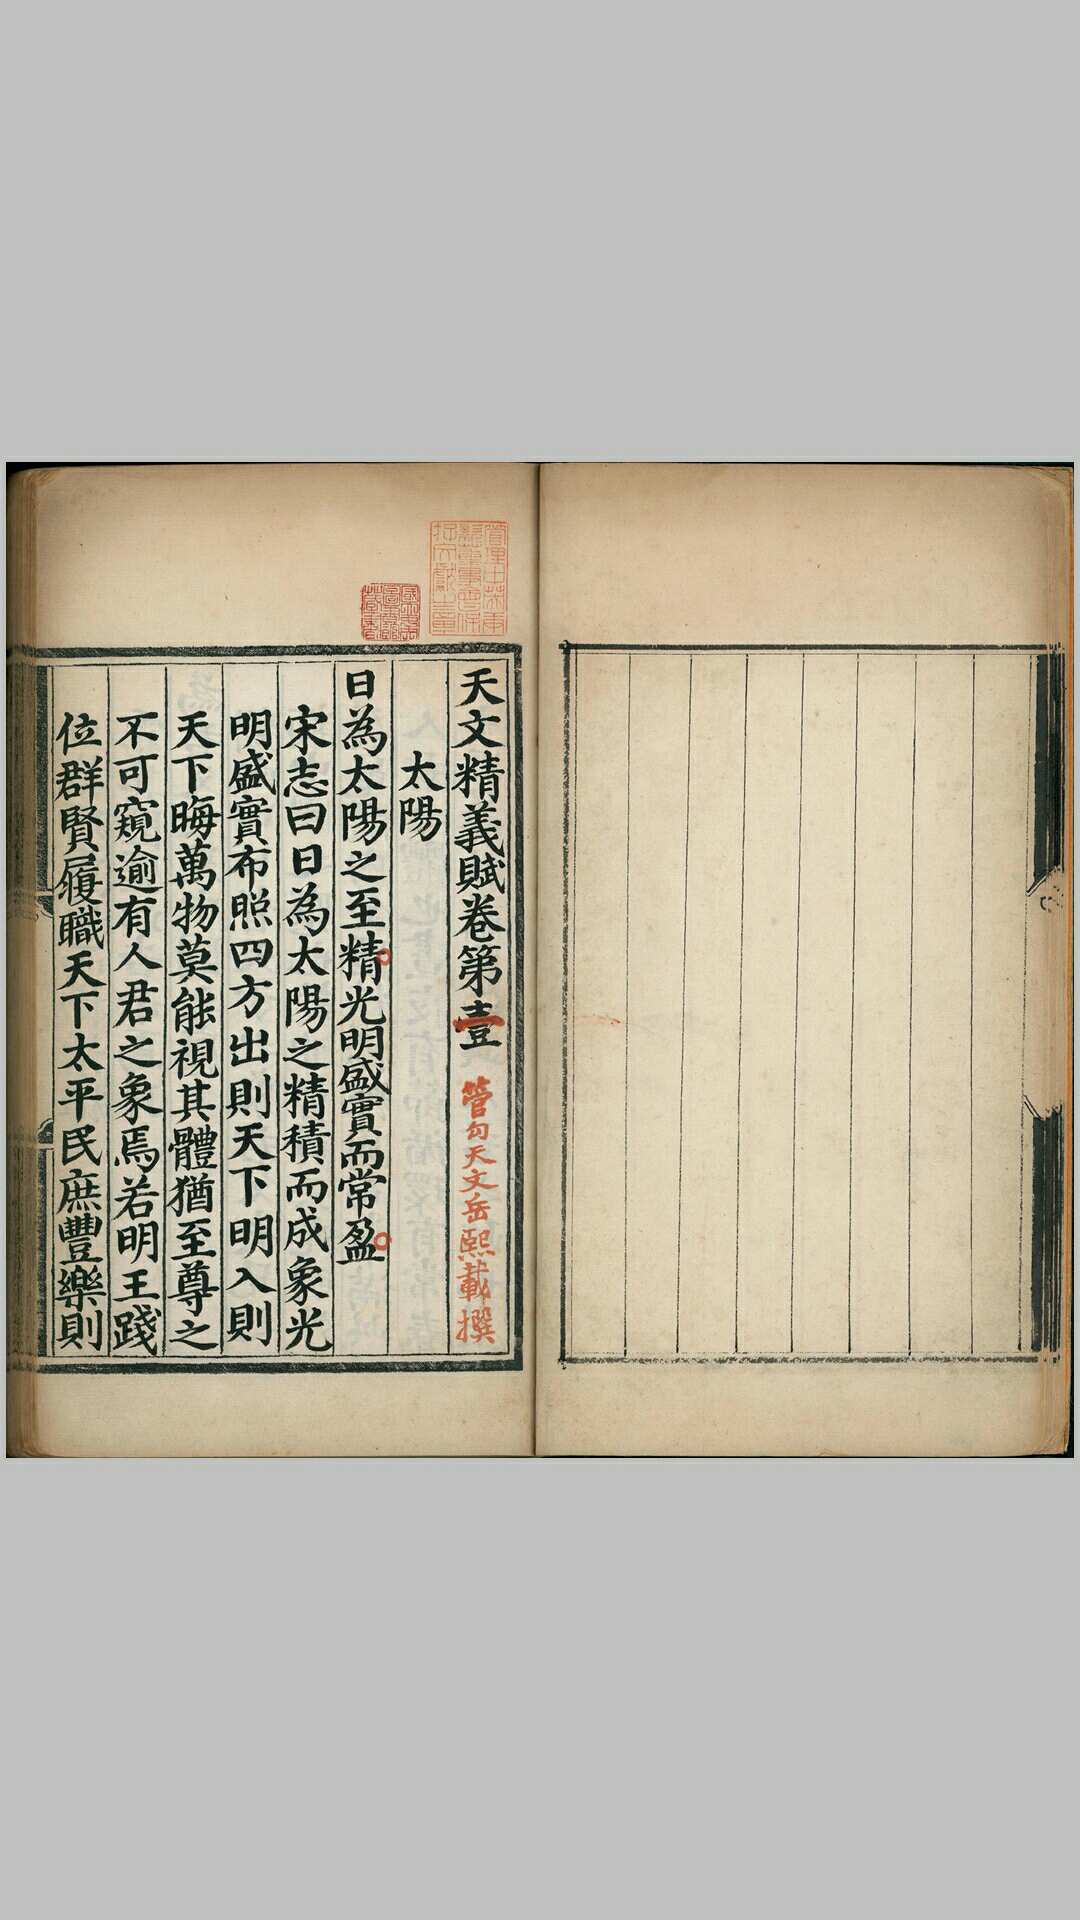 天文精義賦卷第壹 管勾天文岳熙載撰
太陽
日為太陽之至精光明盛實而常盈
宋志曰日為太陽之精積而成象光
明盛實布照四方出則天下明入則
天下晦萬物莫能視其體猶至尊之
不可窺逾有人君之象焉若明王踐
位群賢履職天下太平民庶豐樂則